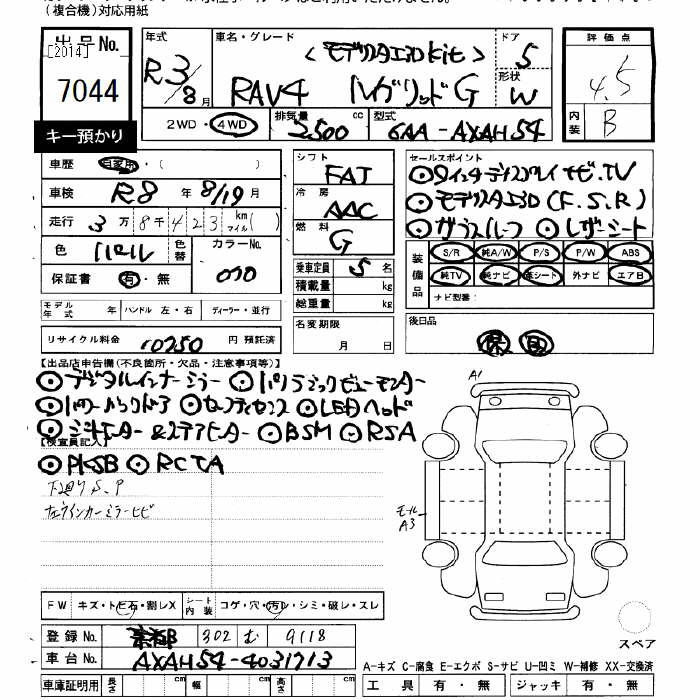 (複合機)対応用紙
出品No.
[2014]
7044
キー預かり
年式
R3/8月
車名・グレード
<モデリスタエアロkit>
RAV4 ハイブリッド G
ドア
5
形状
W
評価点
4.5
内装
B
2WD・4WD
排気量
2500cc
型式
6AA-AXAH54
車歴 自家用・( )
車検 R8年8/19月
走行 3万8千423km マイル( )
色 パール
色替
カラーNo.
070
保証書 有・無
モデル年式 年
ハンドル 左・右
ディーラー・並行
リサイクル料金 10250円預託済
シフト
FAT
冷房
AAC
燃料
G
乗車定員 5名
積載量 kg
総重量 kg
名変期限
月 日
セールスポイント
◎9インチディスプレイナビ.TV
◎モデリスタエアロ(F.S.R)
◎ガラスルーフ ◎レザーシート
装備品
S/R 純A/W P/S P/W ABS
純TV 純ナビ 革シート 外ナビ エアB
ナビ型番:
後日品
保 取
【出品店申告欄(不良箇所・欠品・注意事項等)】
◎デジタルインナーミラー ◎パノラミックビューモニター
◎パワーバックドア ◎セーフティセンス ◎LEDヘッド
◎シートヒーター &ステアヒーター ◎BSM ◎RSA
【検査員記入】
◎PKSB ◎RCTA
下廻りS.P
左ウインカーミラーヒビ
A1
モール
A3
スペア
FW キズ・トビ石・割レX
シート内装 コゲ・穴・汚レ・シミ・破レ・スレ
登録No. 302 む 9118
車台No. AXAH54-4031713
車庫証明用 長さ cm 幅 cm 高さ cm
A-キズ C-腐食 E-エクボ S-サビ U-凹ミ W-補修 XX-交換済
工具 有・無 ジャッキ 有・無